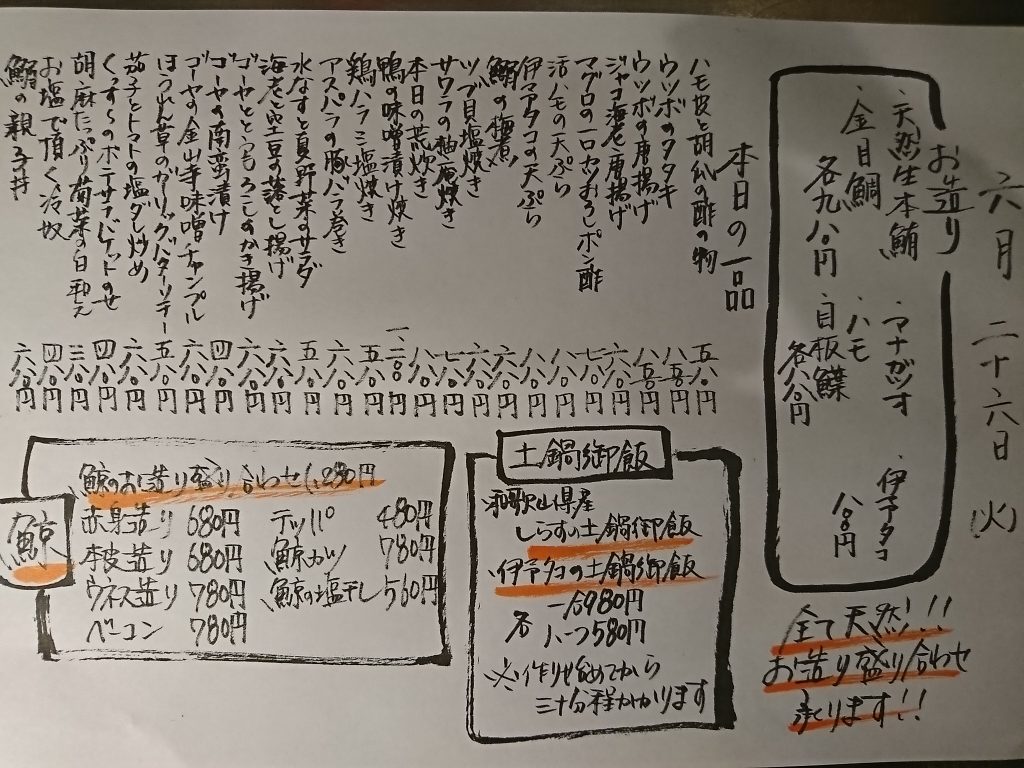 六月二十六日 火
お造り
・天然生本鮪 ・マナガツオ ・伊予ダコ
・金目鯛 ・ハモ 八八〇円
各九八〇円 ・目板鰈
各八八〇円
全て天然!!
お造り盛り合わせ
承ります!!
本日の一品
ハモ皮と胡瓜の酢の物 五八〇円
ウツボのタタキ 八五〇円
ウツボの唐揚げ 八五〇円
ジャコ海老唐揚げ 六八〇円
マグロの一口カツおろしポン酢 七八〇円
活ハモの天ぷら 八八〇円
伊予ダコの天ぷら 八八〇円
鰯の梅煮 六八〇円
ツブ貝塩焼き 六八〇円
サワラの柚庵焼き 七八〇円
本日の荒炊き 八八〇円
鴨の味噌漬け焼き 一、二八〇円
鶏ハラミ塩焼き 五八〇円
アスパラの豚バラ巻き 五八〇円
水なすと夏野菜のサラダ 六八〇円
海老と空豆の落とし揚げ 六八〇円
ゴーヤととうもろこしのかき揚げ 六八〇円
ゴーヤの南蛮漬け 四八〇円
ゴーヤの金山寺味噌チャンプル 六八〇円
ほうれん草のガーリックバターソテー 五八〇円
茄子とトマトの塩ダレ炒め 六八〇円
のポテサラバケットのせ 四八〇円
胡麻たっぷり菊菜の白和え 三八〇円
お塩で頂く冷奴 四八〇円
鰯の親子丼 六八〇円
土鍋御飯
、和歌山県産
しらすの土鍋御飯
、伊予ダコの土鍋御飯
各 一合980円
ハーフ580円
※作り始めてから
三十分程かかります
鯨
、鯨のお造り盛り合わせ1,280円
赤身造り 680円
本皮造り 680円
ウネス造り 780円
ベーコン 780円
テッパ 480円
、鯨カツ 780円
、鯨の塩干し 560円